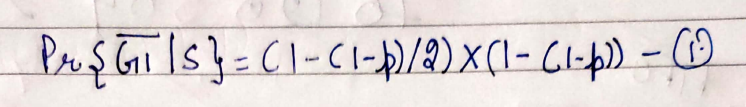 Pr{G̅1̅ | S} = (1-(1-p)/2) × (1-(1-p)) - ①